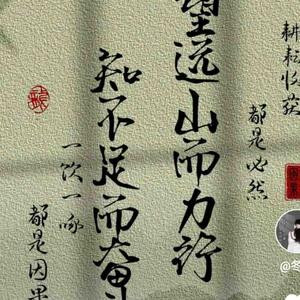 耕耘收获
都是必然
望远山而力行
知不足而奋
一饮一啄
都是因果
@冬